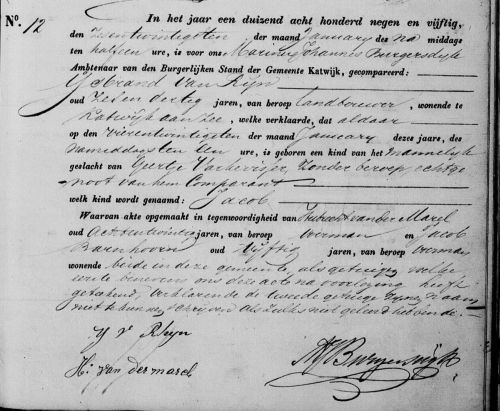 No. 12
In het jaar een duizend acht honderd negen en vijftig,
den der maand January des na middags
ten half een ure, is voor ons Marinus Johannis Burgersdyk
Ambtenaar van den Burgerlijken Stand der Gemeente Katwijk, gecompareerd:
IJsbrand van Rijn
oud Zeven Dertig jaren, van beroep landbouwer, wonende te
Katwijk aan Zee, welke verklaarde, dat aldaar
op den vierentwintigsten der maand January dezes jaars, des
namiddags ten Een ure, is geboren een kind van het Mannelijk
geslacht van Geertje zonder beroep echtge-
noot van hem Comparant
welk kind wordt genaamd: Jacob
Waarvan akte opgemaakt in tegenwoordigheid van Huibrecht van der Marel
oud Achtentwintig jaren, van beroep en Jacob
Barnhoorn oud Vijftig jaren, van beroep
wonende beide in deze gemeente, als getuigen welke
eerste benevens ons deze acte na voorlezing heeft
geteekend, verklarende de tweede getuige
niet te kunnen schryven als zulks niet geleerd hebbende.
Y v Rhyn
H: van der marel
MJBurgersdijk